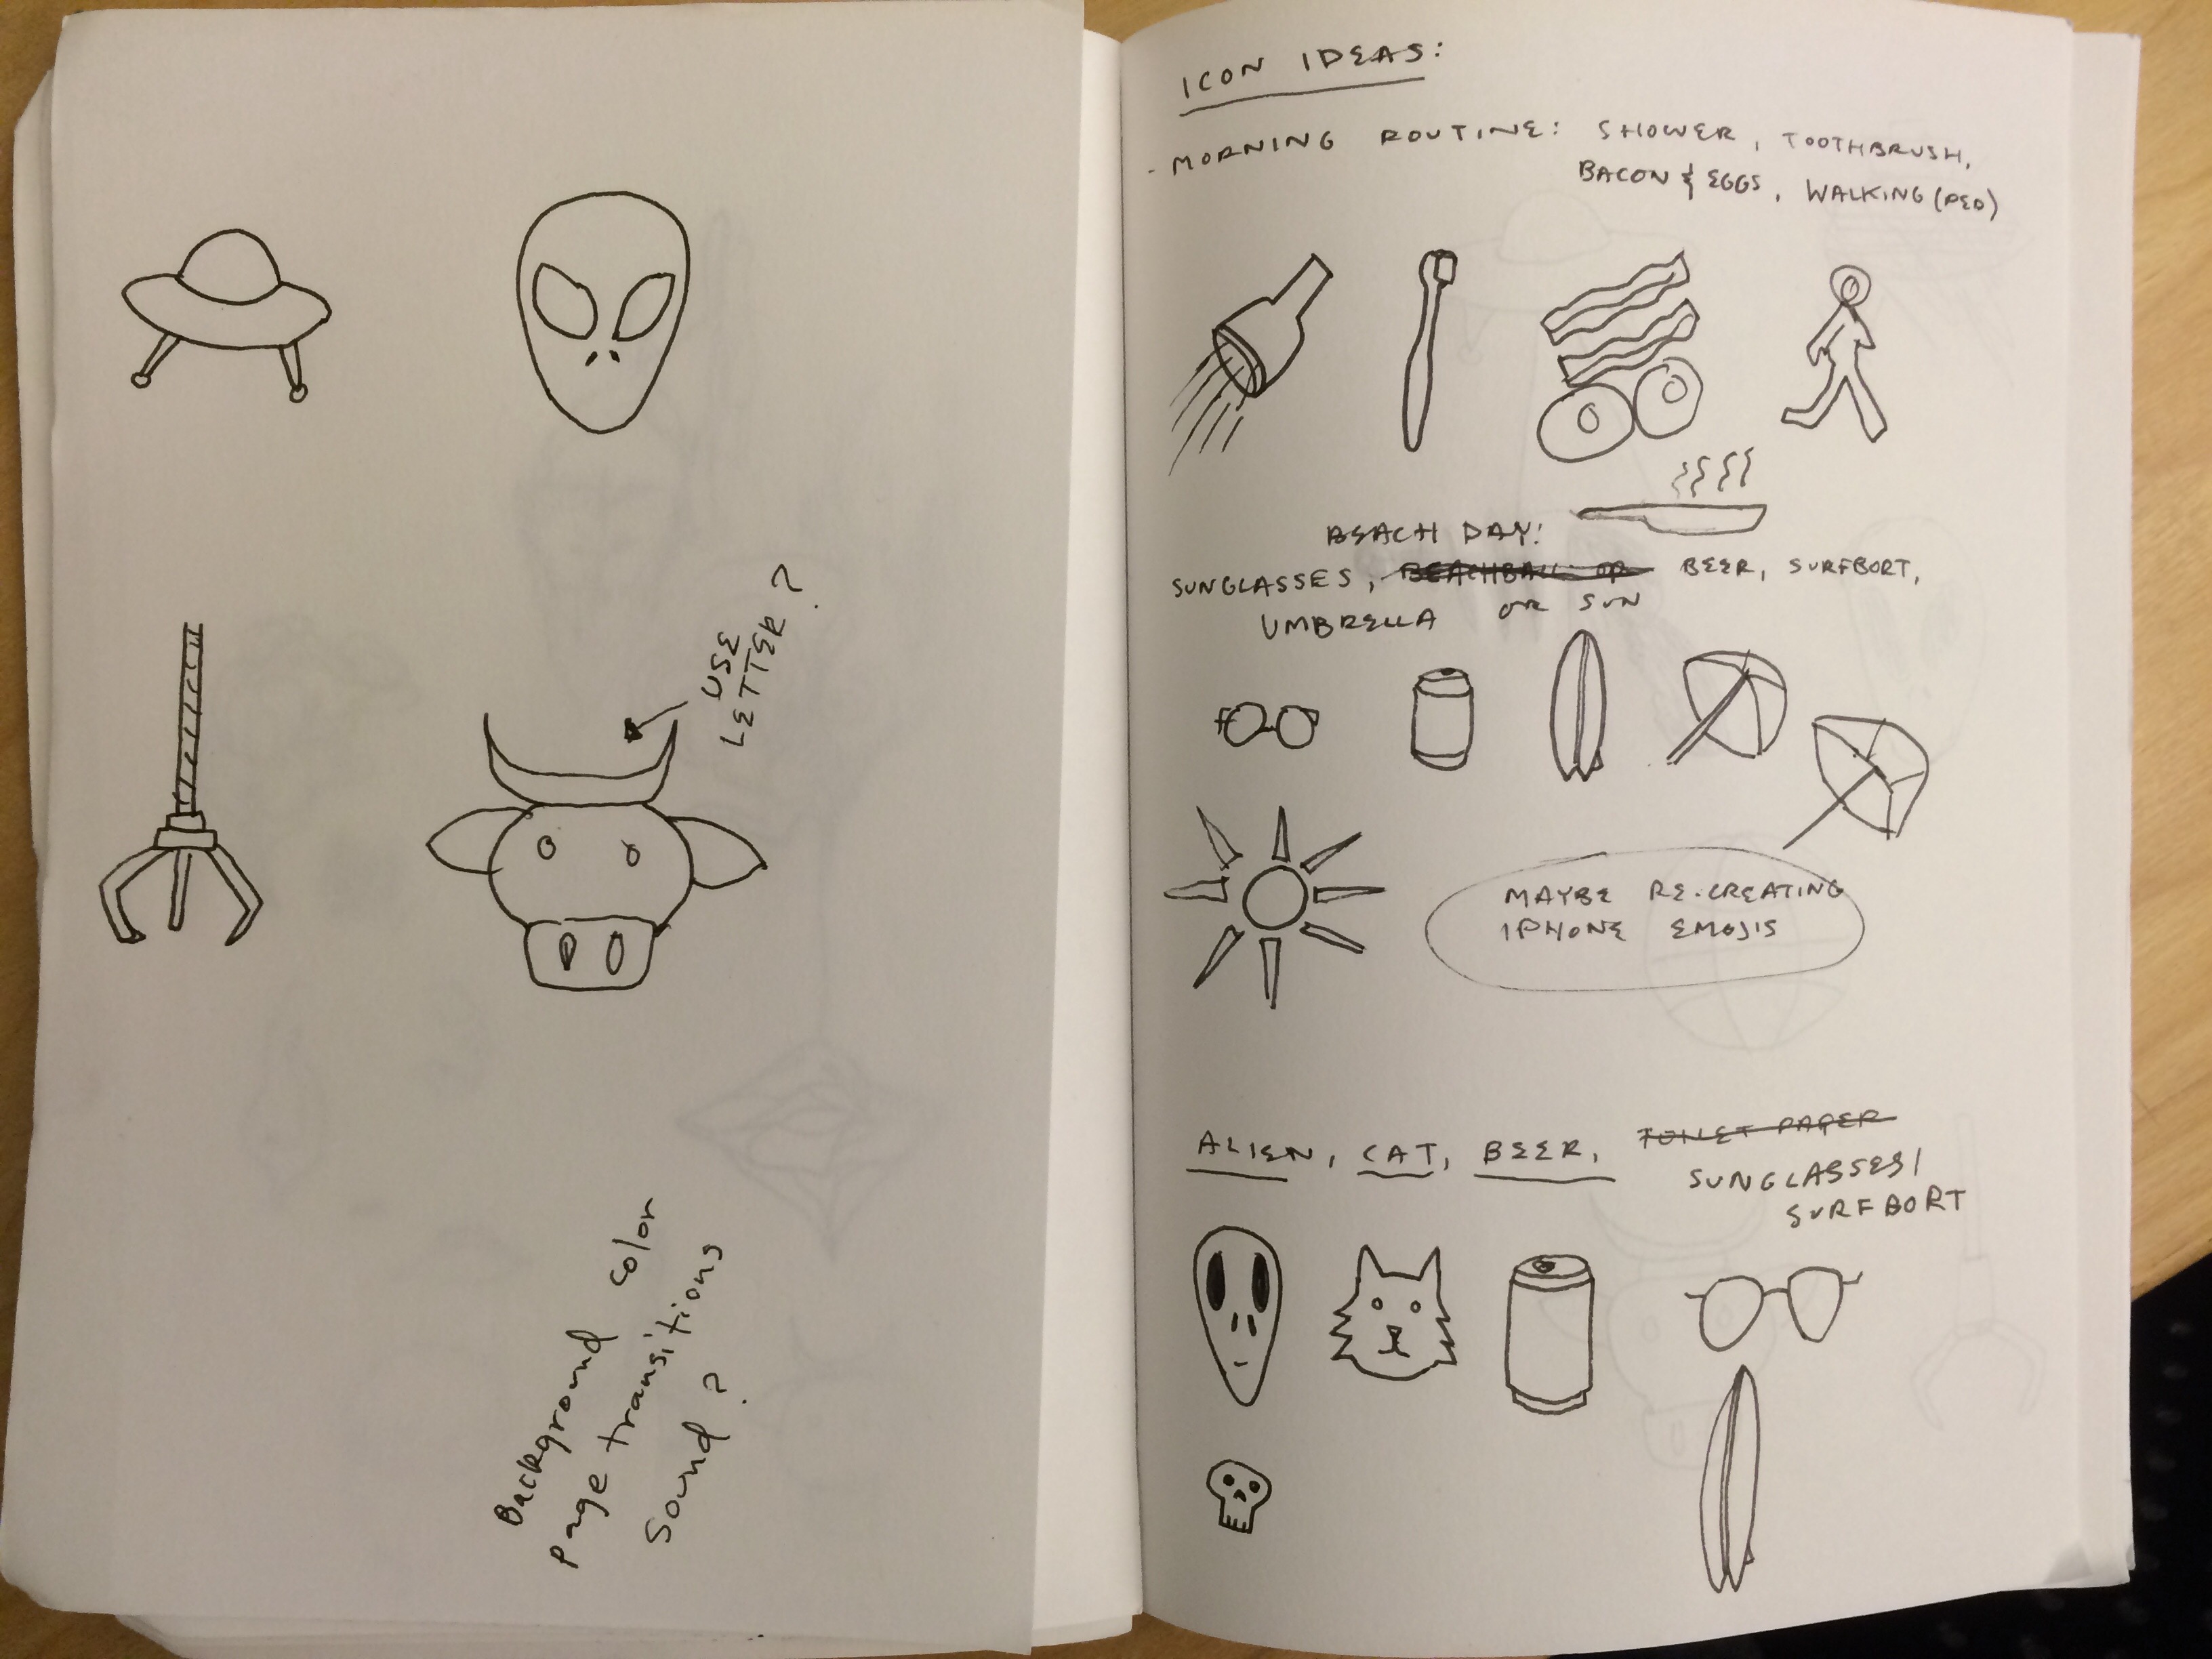 USE
LETTER?
Background color
Page transitions
Sound?
ICON IDEAS:
- MORNING ROUTINE: SHOWER, TOOTHBRUSH,
BACON & EGGS, WALKING (PED)
BEACH DAY:
SUNGLASSES, BEACHBALL OR BEER, SURFBORT,
UMBRELLA OR SUN
MAYBE RE-CREATING
IPHONE EMOJIS
ALIEN, CAT, BEER, TOILET PAPER
SUNGLASSES/
SURFBORT